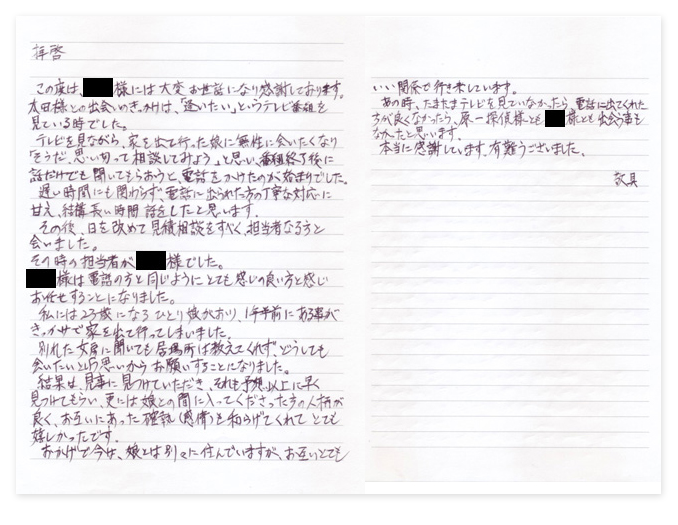 拝啓
この度は、様には大変お世話になり感謝しております。
本田様との出会いのきっかけは、「逢いたい」というテレビ番組を
見ている時でした。
テレビを見ながら、家を出て行った娘に無性に会いたくなり
「そうだ、思い切って相談してみよう」と思い、番組終了後に
話だけでも聞いてもらおうと、電話をかけたのが始まりでした。
遅い時間にも関わらず、電話に出られた方の丁寧な対応に
甘え、結構長い時間話をしたと思います。
その後、日を改めて見積相談をすべく、担当者なる方と
会いました。
その時の担当者が様でした。
様は電話の方と同じようにとても感じの良い方と感じ
お任せすることになりました。
私には23歳になるひとり娘がおり、1年半前にある事が
きっかけで家を出て行ってしまいました。
別れた女房に聞いても居場所は教えてくれず、どうしても
会いたいという思いからお願いすることになりました。
結果は、見事に見つけていただき、それも予想以上に早く
見つけてもらい、更には娘との間に入ってくださった方の人柄が
良く、お互いにあった確執(感情)を和らげてくれてとても
嬉しかったです。
おかげで今は、娘とは別々に住んでいますが、お互いとても
いい関係で行き来しています。
あの時、たまたまテレビを見ていなかったら、電話に出てくれた
方が良くなかったら、原一探偵様とも様とも出会う事も
なかったと思います。
本当に感謝しています。有難うございました。
敬具